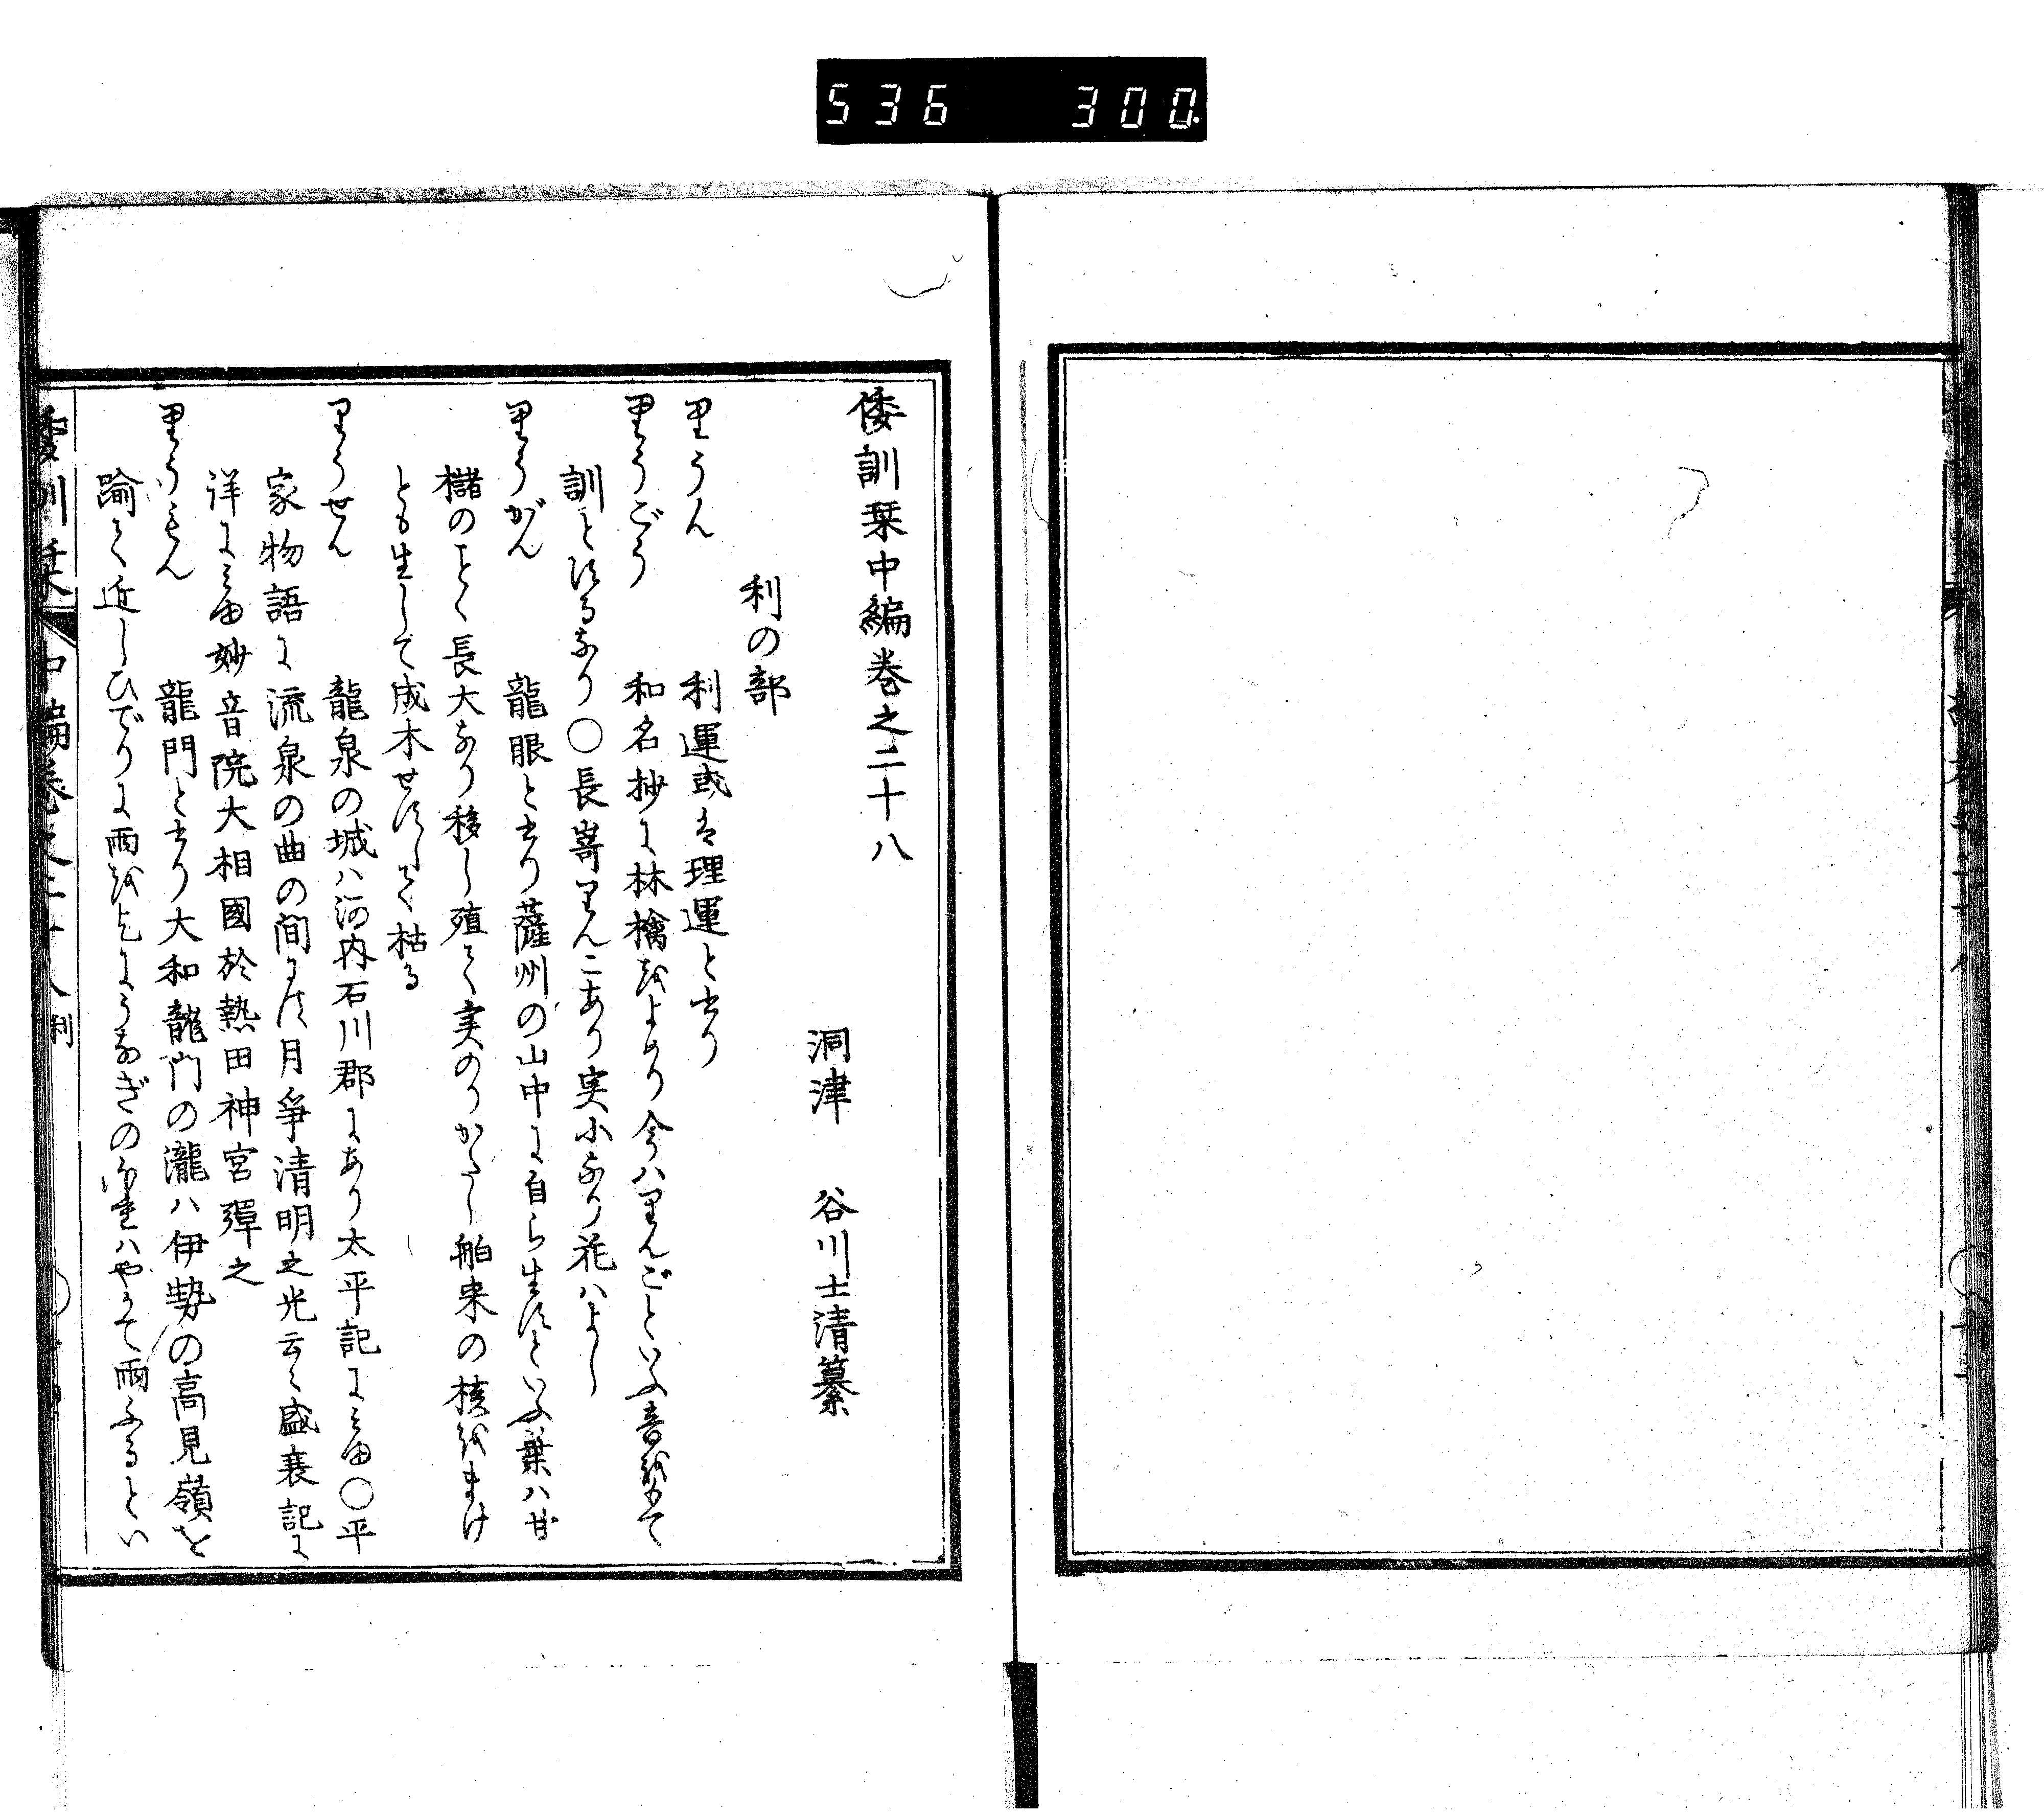 536 300
倭訓栞中編巻之二十八
洞津 谷川士清纂
利の部
りうん 利運或は理運と書り
りうごう 和名抄に林檎をよめり今ハりんごといふ音をもて
訓とするなり○長嵜りんこあり実小なり花ハよし
りうがん 龍眼と書り薩州の山中に自ら生すといふ葉ハ甘
櫧のことく長大なり移し殖て実のりかたし舶来の核をまけ
とも生して成木せすして枯る
りうせん 龍泉の城ハ河内石川郡にあり太平記にみゆ○平
家物語に流泉の曲の間にハ月爭清明之光云々盛衰記に
詳にみゆ妙音院大相國於熱田神宮彈之
りうもん 龍門と書り大和龍門の瀧ハ伊勢の高見嶺を
踰て近しひでりに雨を乞にうなぎの
ハやかて雨ふるとい